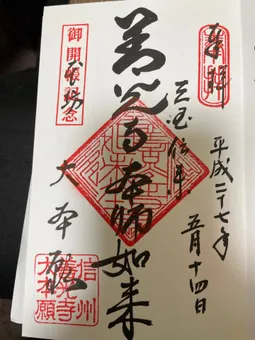 奉拝
平成二十七年
五月十四日
三国傳来
善光寺本師如来
大本願
御開帳記念
信州
善光寺
大本願